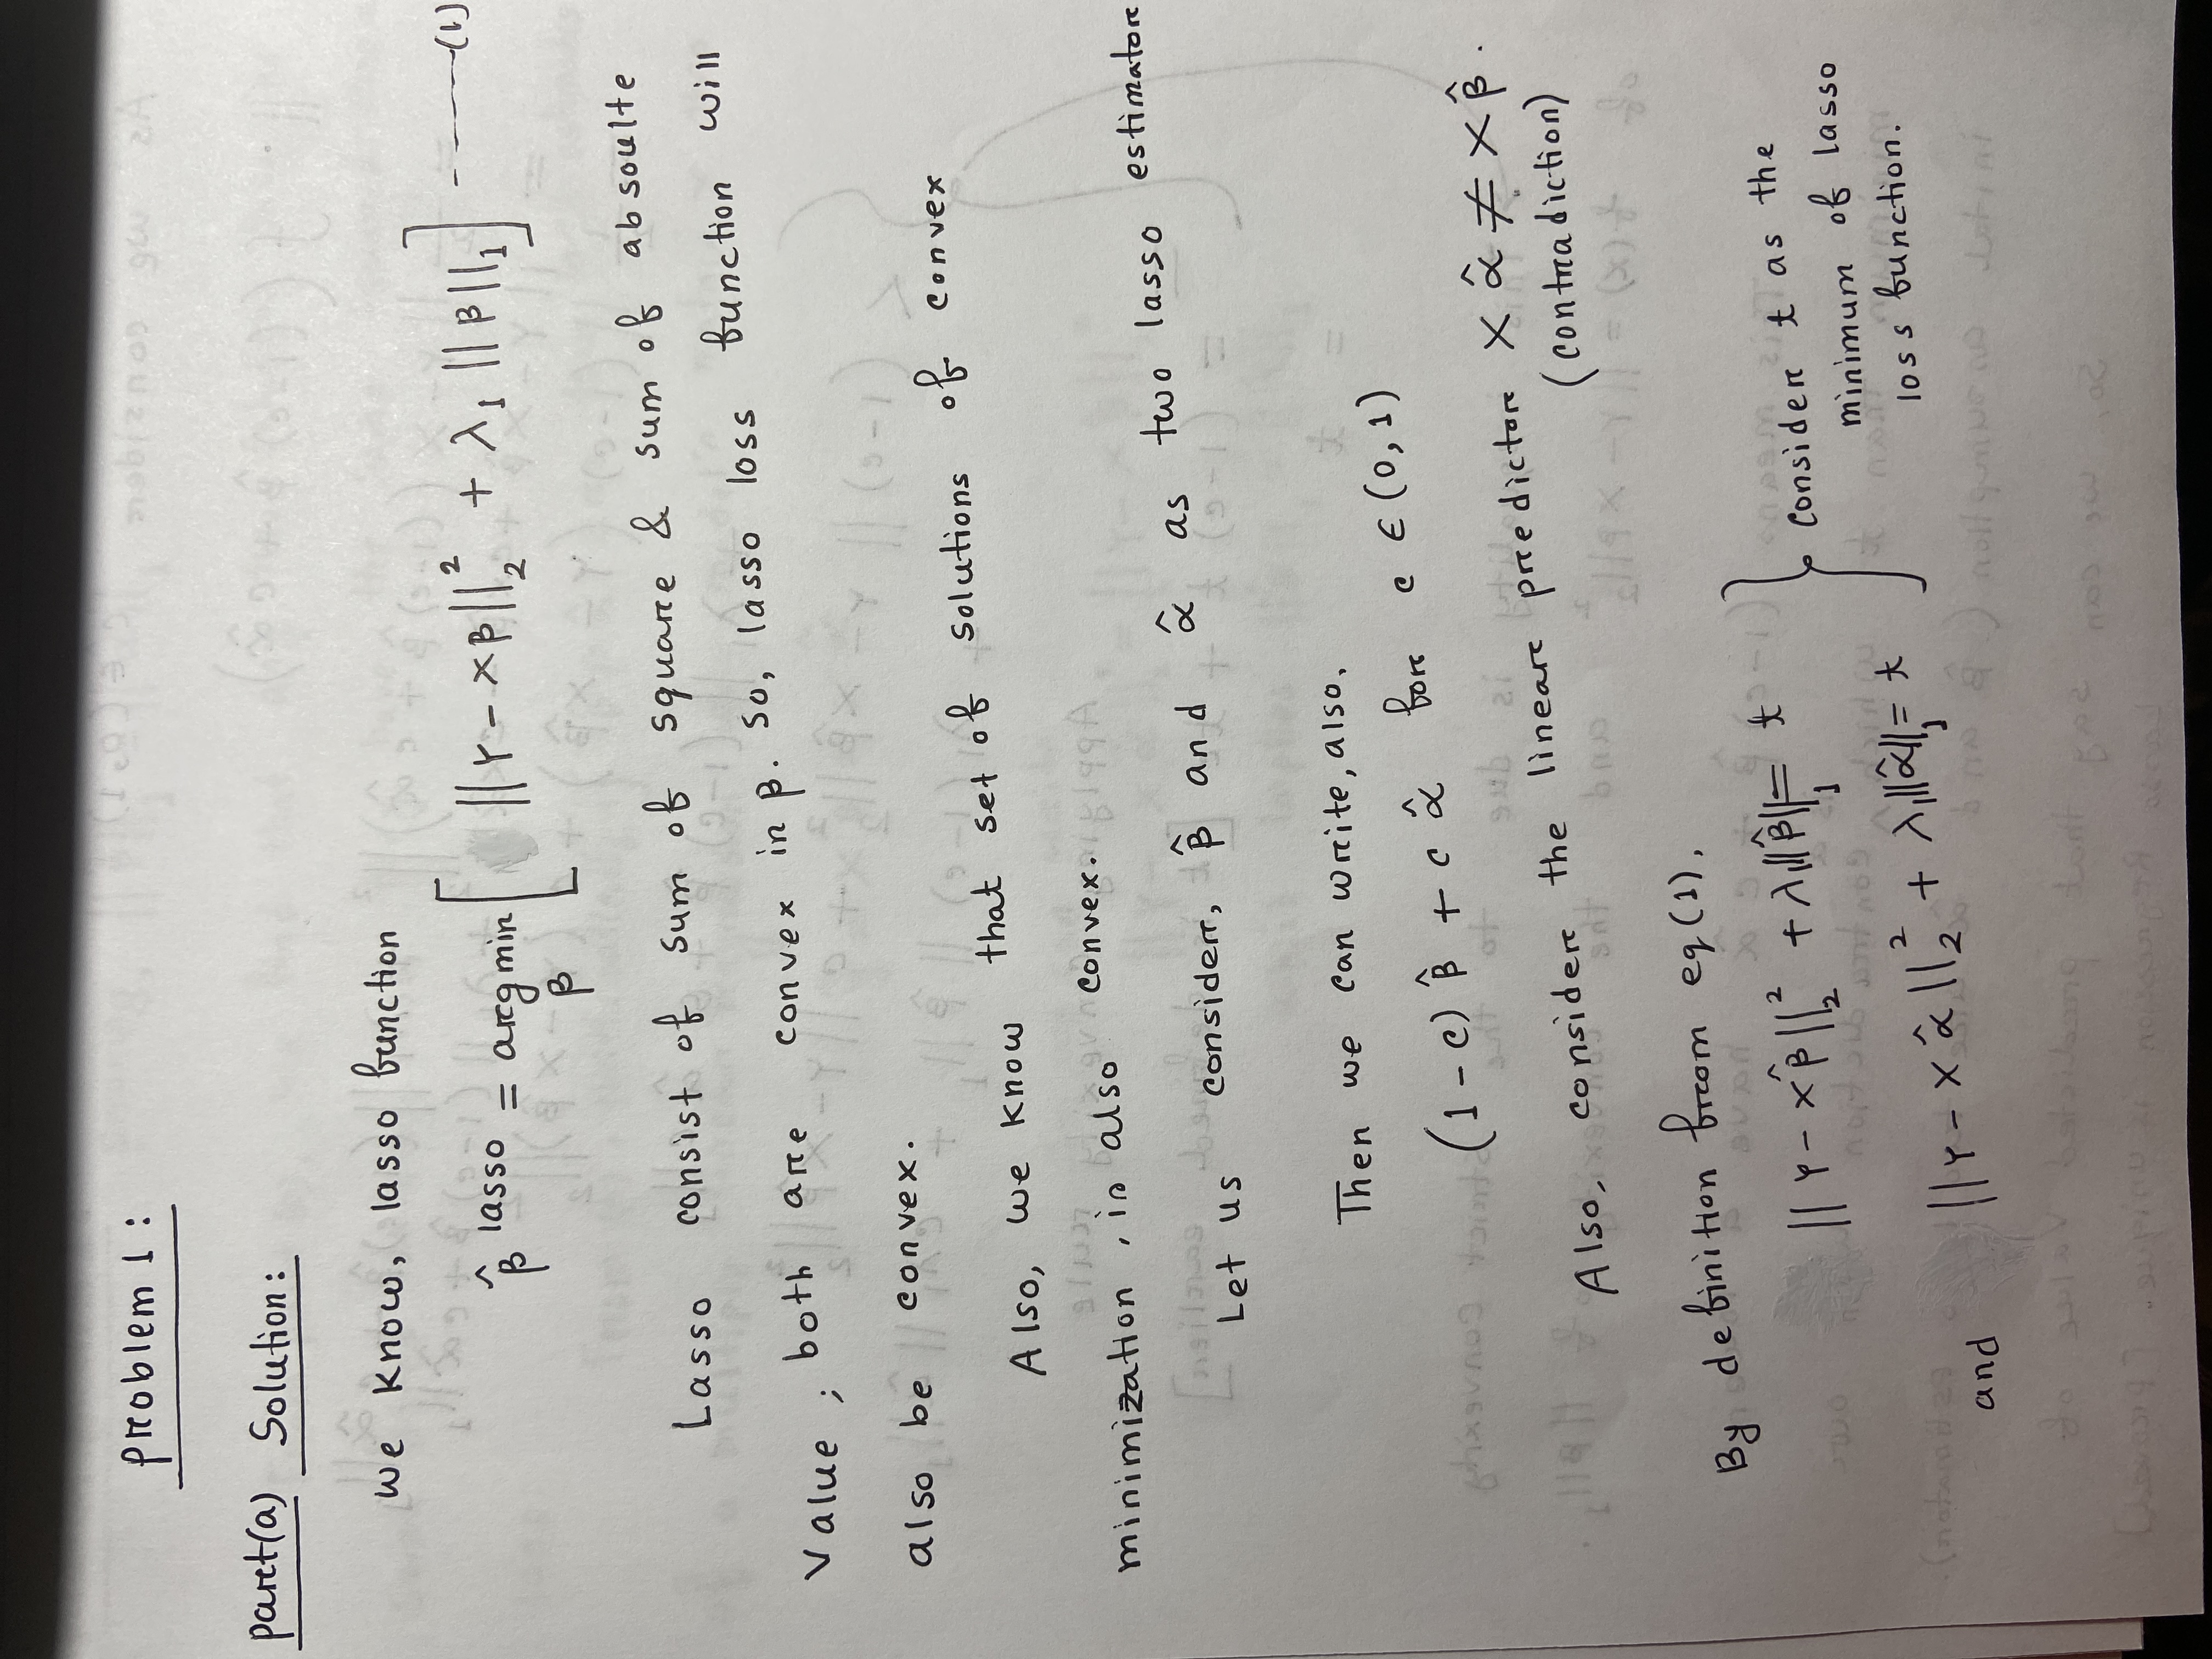 Problem 1 :
Part(a) Solution:
We know, lasso function
β̂ lasso = argmin β [ ||Y - Xβ||₂² + λ₁ ||β||₁ ] ------(1)
Lasso consist of sum of square & sum of absoulte
Value ; both are convex in β. So, lasso loss function will
also be convex.
Also, we know that set of solutions of convex
minimization, is also convex.
Let us consider, β̂ and α̂ as two lasso estimator
Then we can write, also,
(1 - c) β̂ + c α̂ for c ∈ (0, 1)
Also, consider the linear predictor X α̂ ≠ X β̂ .
(contradiction)
By definition from eq (1),
||Y - Xβ̂||₂² + λ₁||β̂||₁ = t
and ||Y - X α̂||₂² + λ₁||α̂||₁ = t
Consider t as the
minimum of lasso
loss function.